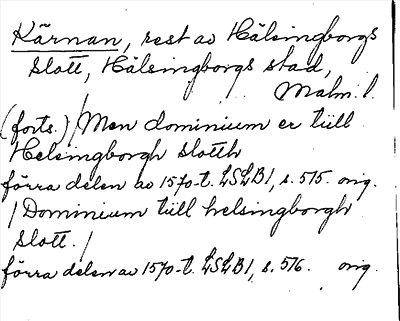 Kärnan, rest av Hälsingborgs
slott, Hälsingborgs stad,
Malm. l.
(forts.) / Men dominium er tiill
Helsingborgh slotth
förra delen av 1570-t. LSLB1, s. 515. orig.
/ Dominium tiill helsingborgh
slott. /
förra delen av 1570-t. LSLB1, s. 516. orig.